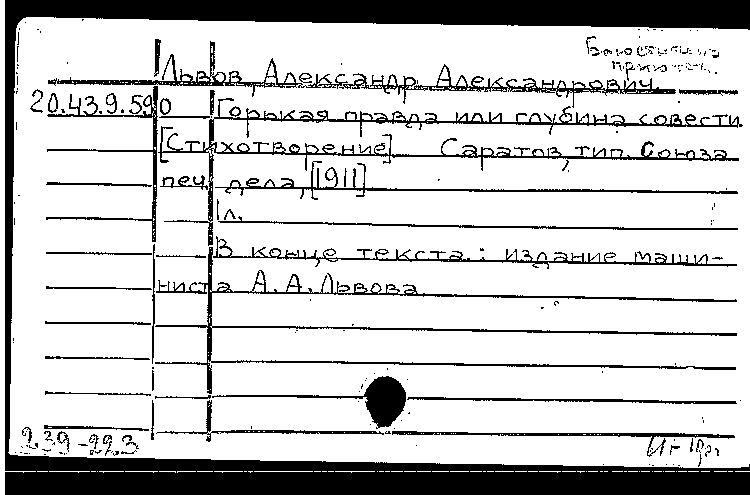 Львов, Александр Александрович.
20.43.9.590 Горькая правда или глубина совести
[Стихотворение] Саратов, тип. Союза
печ. дела, [1911]
1л.
В конце текста: издание маши-
ниста А.А.Львова
2.39-22.3